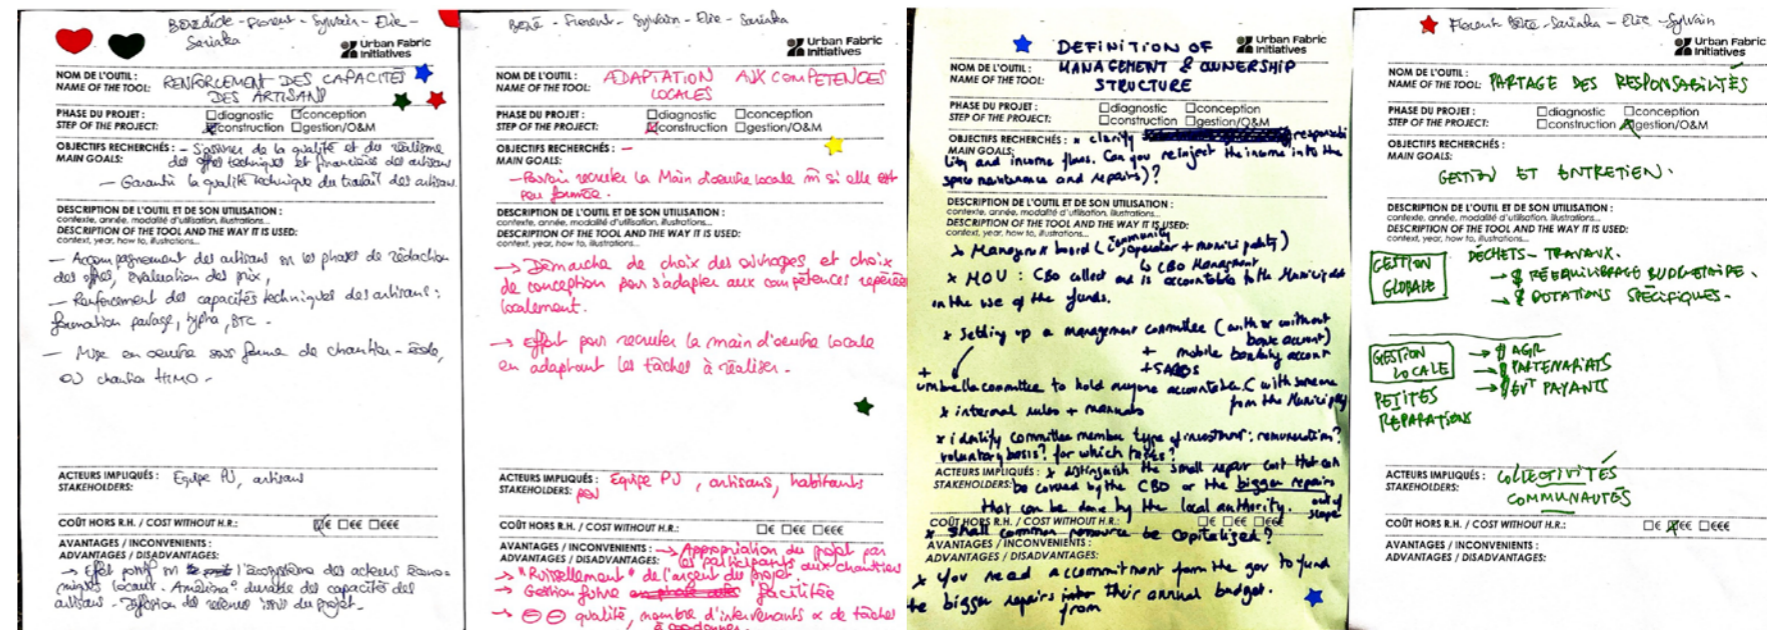 Bénédicte - Florent - Sylvain - Elie -
Sariaka
Urban Fabric
Initiatives
NOM DE L'OUTIL : RENFORCEMENT DES CAPACITÉS
NAME OF THE TOOL: DES ARTISANS
PHASE DU PROJET : diagnostic conception
STEP OF THE PROJECT: construction gestion/O&M
OBJECTIFS RECHERCHÉS : - S'assurer de la qualité et du réalisme
MAIN GOALS: des offres techniques et financières des artisans
- Garantir la qualité technique du travail des artisans.
DESCRIPTION DE L'OUTIL ET DE SON UTILISATION :
contexte, année, modalité d'utilisation, illustrations...
DESCRIPTION OF THE TOOL AND THE WAY IT IS USED:
context, year, how to, illustrations...
- Accompagnement des artisans sur les phases de rédaction
des offres, évaluation des prix,
- Renforcement des capacités techniques des artisans :
formation pavage, typha, BTC -
- Mise en oeuvre sous forme de chantier-école,
ou chantier HIMO -
ACTEURS IMPLIQUÉS : Equipe PU, artisans
STAKEHOLDERS:
COÛT HORS R.H. / COST WITHOUT H.R.: € €€ €€€
AVANTAGES / INCONVENIENTS :
ADVANTAGES / DISADVANTAGES:
→ Effet positif sur l'écosystème des acteurs écono-
miques locaux. Amélioration durable des capacités des
artisans - Diffusion des savoirs issus du projet -
Béné - Florent - Sylvain - Elie - Sariaka
Urban Fabric
Initiatives
NOM DE L'OUTIL : ADAPTATION AUX COMPETENCES
NAME OF THE TOOL: LOCALES
PHASE DU PROJET : diagnostic conception
STEP OF THE PROJECT: construction gestion/O&M
OBJECTIFS RECHERCHÉS : -
MAIN GOALS:
- Pouvoir recruter la Main d'oeuvre locale m̂ si elle est
peu formée.
DESCRIPTION DE L'OUTIL ET DE SON UTILISATION :
contexte, année, modalité d'utilisation, illustrations...
DESCRIPTION OF THE TOOL AND THE WAY IT IS USED:
context, year, how to, illustrations...
→ Démarche de choix des ouvrages et choix
de conception pour s'adapter aux compétences repérées
localement.
→ Effort pour recruter la main d'oeuvre locale
en adaptant les tâches à réaliser -
ACTEURS IMPLIQUÉS : Equipe PU, artisans, habitants
STAKEHOLDERS:
COÛT HORS R.H. / COST WITHOUT H.R.: € €€ €€€
AVANTAGES / INCONVENIENTS : → Appropriation du projet par
ADVANTAGES / DISADVANTAGES: les participants aux chantiers
→ "Ruissellement" de l'argent du projet
→ Gestion future facilitée
→ ⊖⊖ qualité, nombre d'intervenants & de tâches
à coordonner.
DEFINITION OF
Urban Fabric
Initiatives
NOM DE L'OUTIL : MANAGEMENT & OWNERSHIP
NAME OF THE TOOL: STRUCTURE
PHASE DU PROJET : diagnostic conception
STEP OF THE PROJECT: construction gestion/O&M
OBJECTIFS RECHERCHÉS : * clarify responsabi
MAIN GOALS: lity and income flows. Can you reinject the income into the
space maintenance and repairs)?
DESCRIPTION DE L'OUTIL ET DE SON UTILISATION :
contexte, année, modalité d'utilisation, illustrations...
DESCRIPTION OF THE TOOL AND THE WAY IT IS USED:
context, year, how to, illustrations...
community
* Managmt board ( operator + municipality)
↳ CBO Managment
* MOU : CBO collect and is accountable to the Municipalit
in the use of the funds.
* Setting up a management committee (with or without
bank account)
+ mobile banking account
+
umbrella committee to hold anyone accountable. ( with someone
from the Municipality
* internal rules + manuals
* identify committee member type of investment : remuneration?
voluntary basis? for which taxes?
ACTEURS IMPLIQUÉS : * distinguish the small repair cost that can
STAKEHOLDERS: be covered by the CBO or the bigger repairs
that can be done by the local authority. out of
scope
COÛT HORS R.H. / COST WITHOUT H.R.: € €€ €€€
* Shall common resource be capitalized?
AVANTAGES / INCONVENIENTS :
ADVANTAGES / DISADVANTAGES:
* You need a commitment form the gov to fund
the bigger repairs from their annual budget.
Florent Béné - Sariaka - Elie - Sylvain
Urban Fabric
Initiatives
NOM DE L'OUTIL :
NAME OF THE TOOL: PARTAGE DES RESPONSABILITÉS
PHASE DU PROJET : diagnostic conception
STEP OF THE PROJECT: construction gestion/O&M
OBJECTIFS RECHERCHÉS :
MAIN GOALS:
GESTION ET ENTRETIEN.
DESCRIPTION DE L'OUTIL ET DE SON UTILISATION :
contexte, année, modalité d'utilisation, illustrations...
DESCRIPTION OF THE TOOL AND THE WAY IT IS USED:
context, year, how to, illustrations...
GESTION GLOBALE
DÉCHETS - TRAVAUX.
→ RÉÉQUILIBRAGE BUDGETAIRE.
→ DOTATIONS SPÉCIFIQUES -
GESTION LOCALE
→ AGR
→ PARTENARIATS
→ EVT PAYANTS
PETITES
RÉPARATIONS
ACTEURS IMPLIQUÉS : COLLECTIVITÉS
STAKEHOLDERS: COMMUNAUTÉS
COÛT HORS R.H. / COST WITHOUT H.R.: € €€ €€€
AVANTAGES / INCONVENIENTS :
ADVANTAGES / DISADVANTAGES: